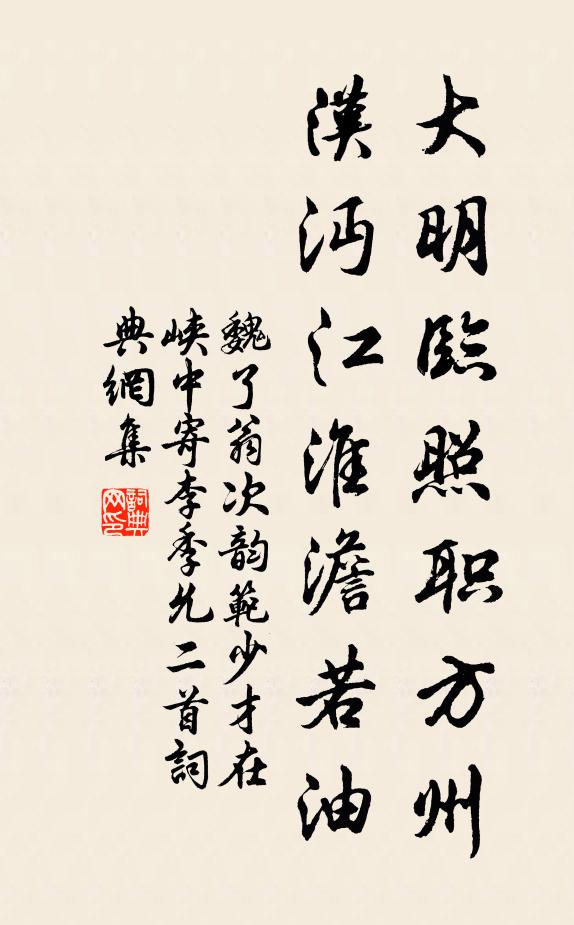 大明臨照职方州
漢沔江淮澹若油
魏了翁次韵範少才在
峡中寄李季允二首詞
典網集
詞典网印